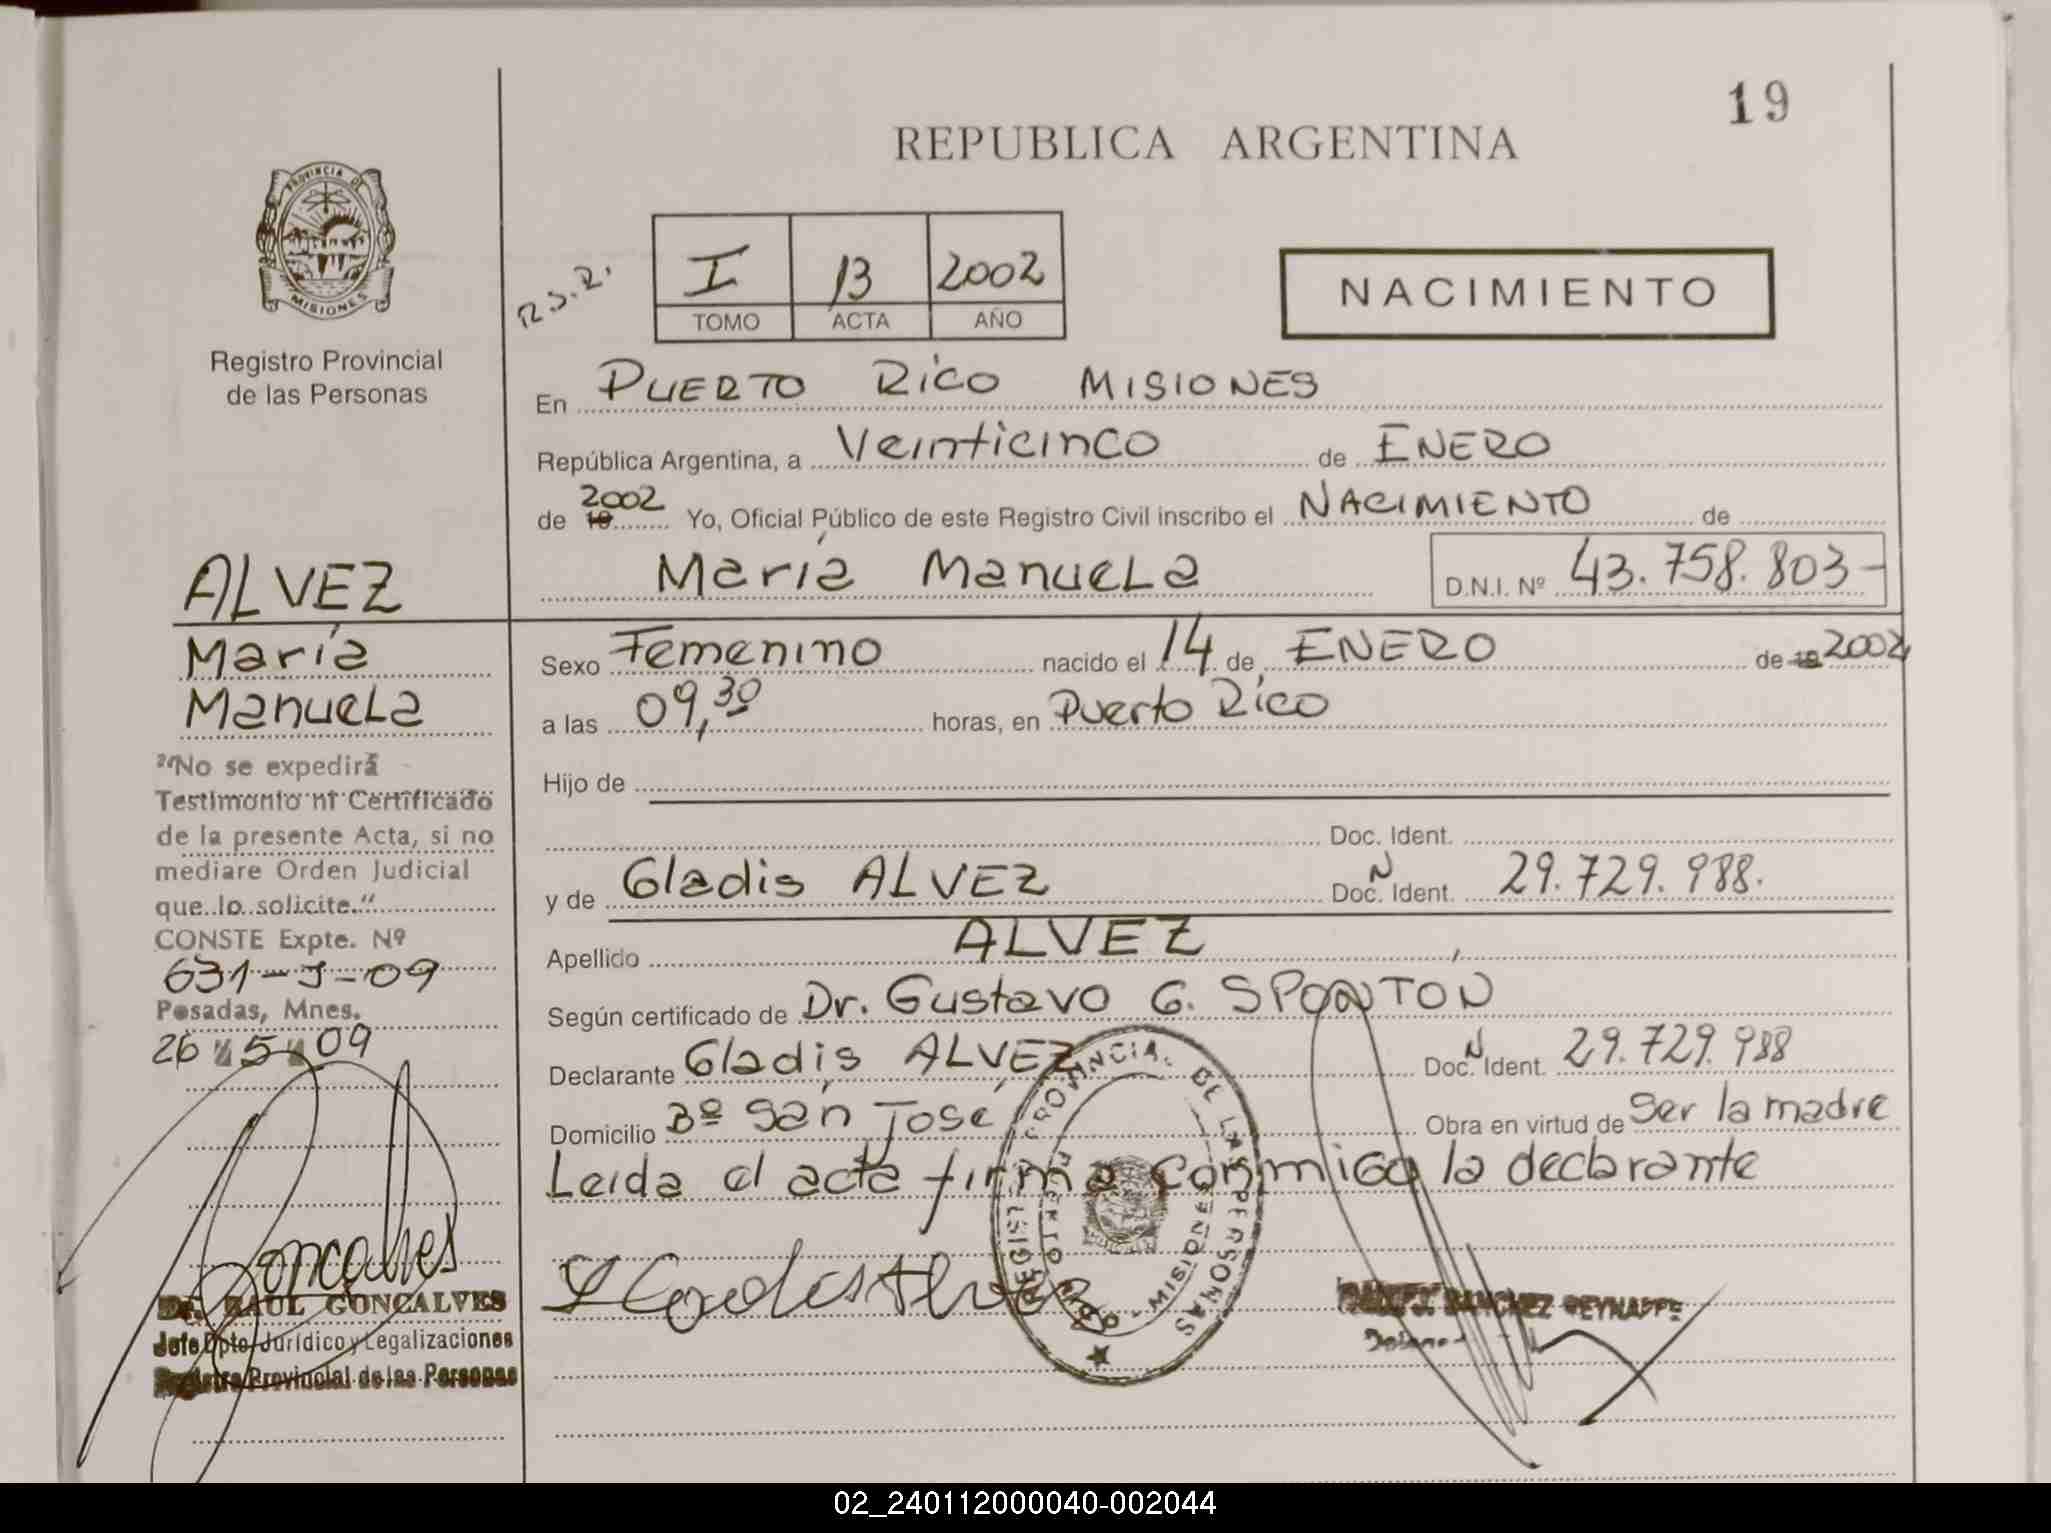 19
REPUBLICA ARGENTINA
PROVINCIA DE
MISIONES
Registro Provincial
de las Personas
R.S.R.
I 13 2002
TOMO ACTA AÑO
NACIMIENTO
En PUERTO RICO MISIONES
República Argentina, a Veinticinco de ENERO
de 19 2002 Yo, Oficial Público de este Registro Civil inscribo el NACIMIENTO de
María Manuela D.N.I. Nº 43.758.803-
Sexo Femenino nacido el 14 de ENERO de 19 2002
a las 09,30 horas, en Puerto Rico
Hijo de
Doc. Ident.
y de Gladis ALVEZ Doc. N Ident. 29.729.988.
Apellido ALVEZ
Según certificado de Dr. Gustavo G. SPONTON
Declarante Gladis ALVEZ Doc. N Ident. 29.729.988
Domicilio Bº San José Obra en virtud de Ser la madre
Leida el acta firma conmigo la declarante
Gladis Alvez
REGISTRO PROVINCIAL DE LAS PERSONAS
PUERTO RICO - MISIONES
SANCHEZ REYNAFFE
ALVEZ
María
Manuela
"No se expedirá
Testimonio ni Certificado
de la presente Acta, si no
mediare Orden Judicial
que lo solicite."
CONSTE Expte. Nº
631-J-09
Posadas, Mnes.
26 5 09
Goncalves
Dr. RAUL GONCALVES
Jefe Dpto. Jurídico y Legalizaciones
Registro Provincial de las Personas
02_240112000040-002044